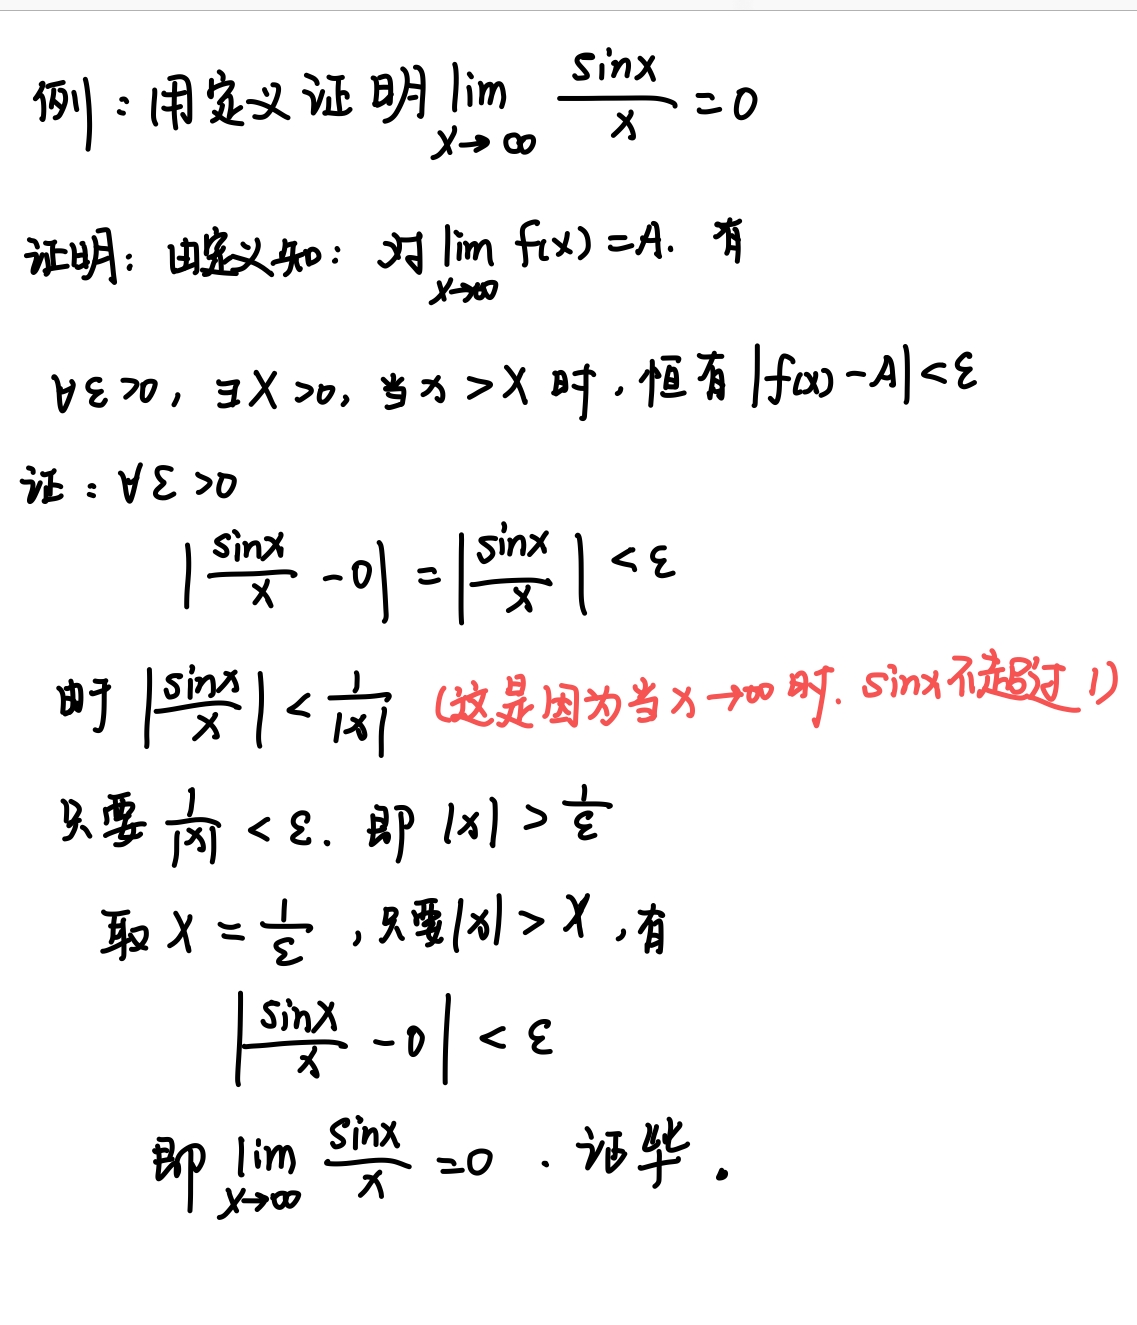 例：用定义证明 lim x→∞ sinx/x = 0
证明：由定义知：对 lim x→∞ f(x) = A. 有
∀ε>0, ∃X>0, 当x>X时，恒有|f(x)-A|<ε
证：∀ε>0
|sinx/x - 0| = |sinx/x| < ε
由于 |sinx/x| < 1/|x| (这是因为当x→∞时. sinx不超过1)
只要 1/|x| < ε. 即 |x| > 1/ε
取 X = 1/ε, 只要|x| > X, 有
|sinx/x - 0| < ε
即 lim x→∞ sinx/x = 0 . 证毕.